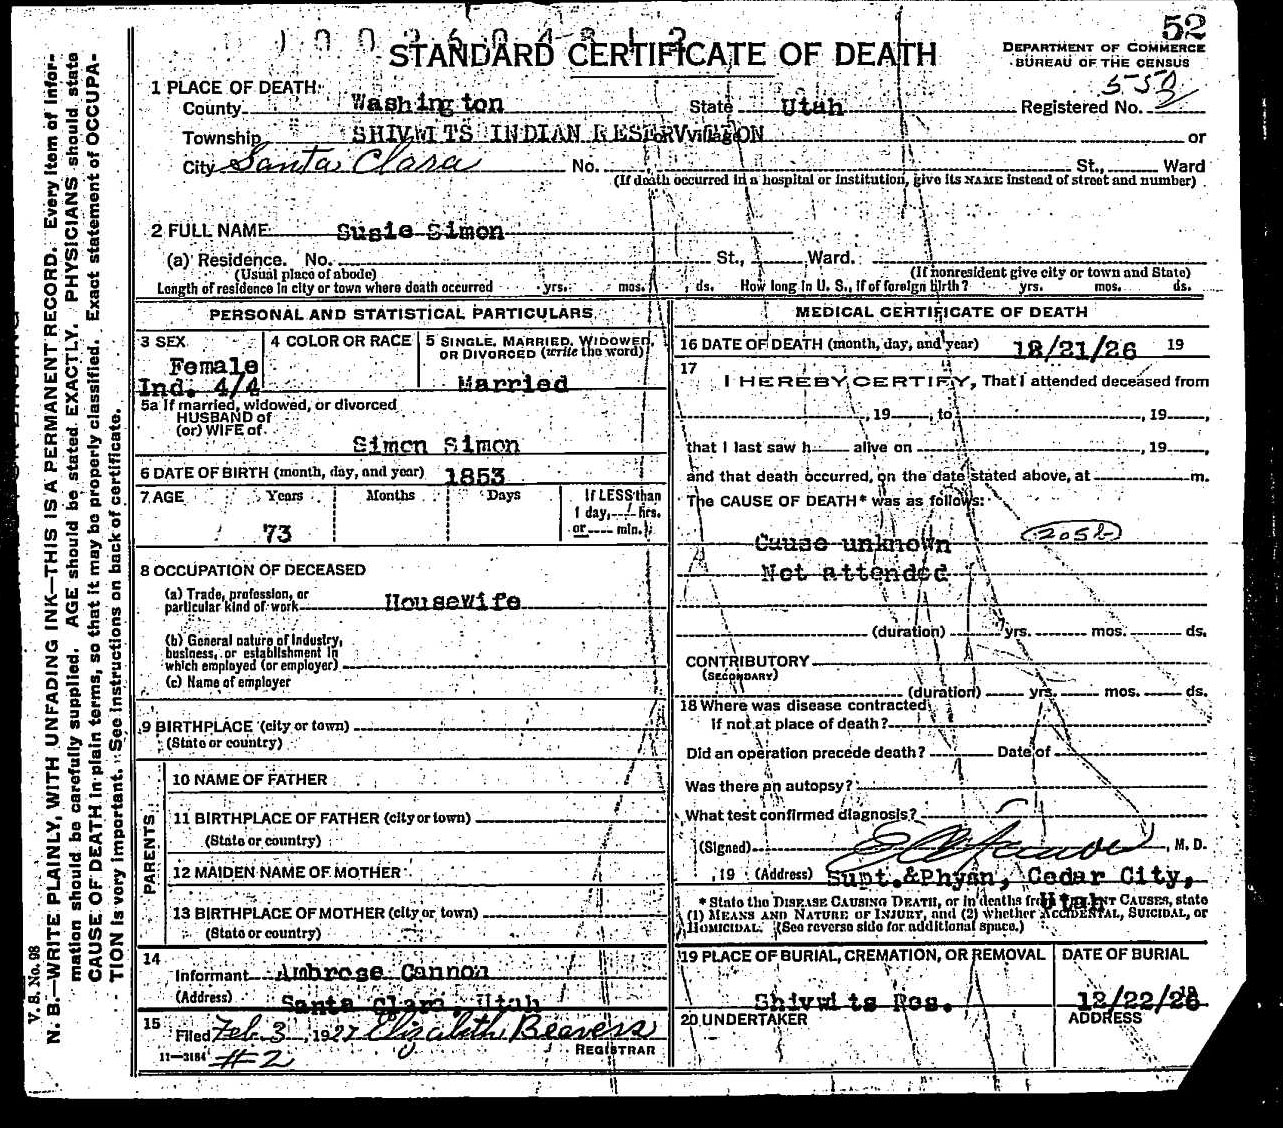 52
STANDARD CERTIFICATE OF DEATH
DEPARTMENT OF COMMERCE
BUREAU OF THE CENSUS
1 PLACE OF DEATH:
County Washington State Utah Registered No. 
Township SHIVWITS INDIAN RESERVATION or Village or
City Santa Clara No. St., Ward
(If death occurred in a hospital or institution, give its NAME instead of street and number)
2 FULL NAME Susie Simon
(a) Residence. No. St., Ward.
(Usual place of abode) (If nonresident give city or town and State)
Length of residence in city or town where death occurred yrs. mos. ds. How long in U. S., if of foreign birth? yrs. mos. ds.
PERSONAL AND STATISTICAL PARTICULARS
3 SEX 4 COLOR OR RACE 5 SINGLE, MARRIED, WIDOWED,
OR DIVORCED (write the word)
Female
Ind. 4/4 Married
5a If married, widowed, or divorced
HUSBAND of
(or) WIFE of
Simon Simon
6 DATE OF BIRTH (month, day, and year) 1853
7 AGE Years Months Days If LESS than
1 day, hrs.
73 or min.
8 OCCUPATION OF DECEASED
(a) Trade, profession, or
particular kind of work Housewife
(b) General nature of Industry,
business, or establishment in
which employed (or employer)
(c) Name of employer
9 BIRTHPLACE (city or town)
(State or country)
PARENTS
10 NAME OF FATHER
11 BIRTHPLACE OF FATHER (city or town)
(State or country)
12 MAIDEN NAME OF MOTHER
13 BIRTHPLACE OF MOTHER (city or town)
(State or country)
14
Informant Ambrose Cannon
(Address) Santa Clara, Utah
15 Filed Feb. 3, 1927 Elizabeth Beavers
REGISTRAR
11—3184 #2
MEDICAL CERTIFICATE OF DEATH
16 DATE OF DEATH (month, day, and year) 12/21/26 19
17
I HEREBY CERTIFY, That I attended deceased from
, 19 , to , 19 ,
that I last saw h alive on , 19 ,
and that death occurred, on the date stated above, at m.
The CAUSE OF DEATH* was as follows:
Cause unknown
Not attended
(duration) yrs. mos. ds.
CONTRIBUTORY
(SECONDARY)
(duration) yrs. mos. ds.
18 Where was disease contracted
if not at place of death?
Did an operation precede death? Date of
Was there an autopsy?
What test confirmed diagnosis?
(Signed) , M. D.
, 19 (Address) Supt.&Physn, Cedar City,
Utah
* State the DISEASE CAUSING DEATH, or in deaths from VIOLENT CAUSES, state
(1) MEANS AND NATURE OF INJURY, and (2) whether ACCIDENTAL, SUICIDAL, or
HOMICIDAL. (See reverse side for additional space.)
19 PLACE OF BURIAL, CREMATION, OR REMOVAL DATE OF BURIAL
Shivwits Res. 12/22/26 19
20 UNDERTAKER ADDRESS
V. S. No. 98
N. B.—WRITE PLAINLY, WITH UNFADING INK—THIS IS A PERMANENT RECORD. Every item of infor-
mation should be carefully supplied. AGE should be stated EXACTLY. PHYSICIANS should state
CAUSE OF DEATH in plain terms, so that it may be properly classified. Exact statement of OCCUPA-
TION is very important. See instructions on back of certificate.